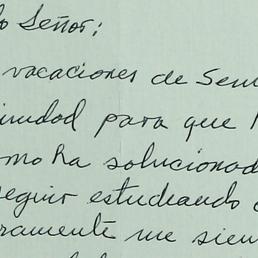 Señor:
vacaciones de
para que
ha solucionad
seguir estudiando
ramente me sien